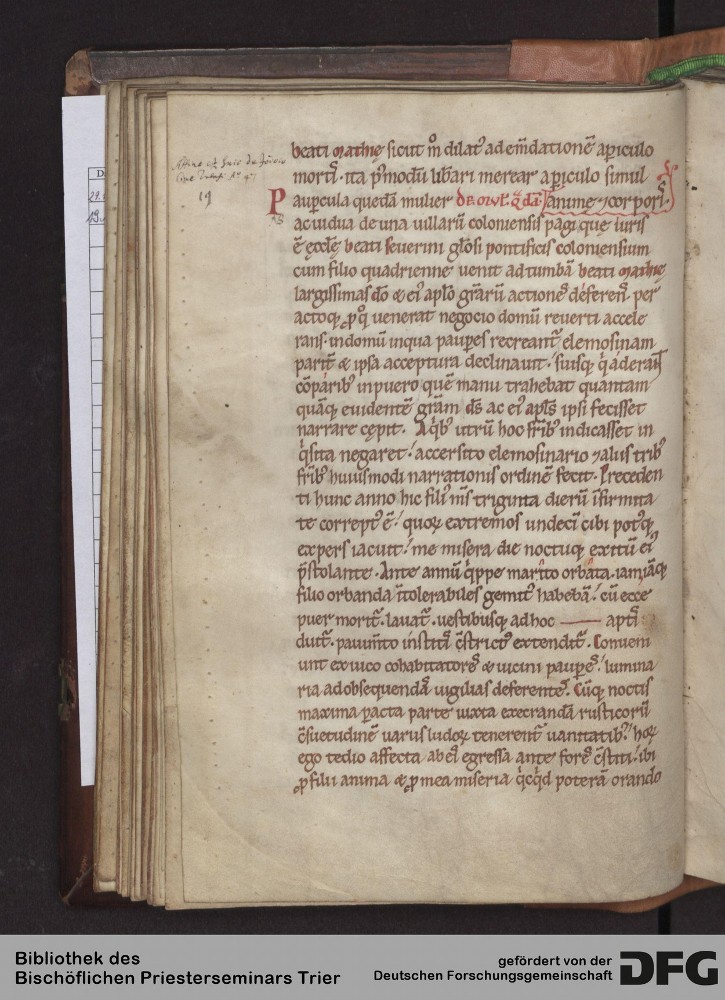 beati mathie sicut m̄ dilat᷒ ad em̄dationē a ꝑiculo
morti᷒. ita p᷒modū lib̄ari merear a ꝑiculo simul
19
Paupercula quedā mulier de mort. q̄dā. anime ⁊ corpori᷒.
ac uidua de una uillarū coloniensis pagi que iuris
ē ęcclę beati seuerini gl̄osi pontificis coloniensium
cum filio quadrienne uenit ad tumbā beati mathie
largissimas dō & ei᷒ apl̄o grārū actiones deferens. per
actoq; ꝓ q᷒ uenerat negocio domū reuerti accele
rans. in domū in qua pauꝑes recreant᷒ elemosinam
parit̄ & ipsa acceptura declinauit. suisq; q̇ aderant
cōparib᷒ in puero quē manu trahebat quantam
quāq; euidentē grām ds̄ ac ei᷒ apl̄s ipsi fecisset
narrare cępit. A q̇b᷒ utrū hoc frīb᷒ indicasset in
q̇sita negaret. accersito elemosinario ⁊ aliis trib᷒
frīb᷒ huiusmodi narrationis ordinē fecit. Preceden
ti hunc anno hic fili᷒ m̄s triginta dierū īfirmita
te corrept᷒ ē. quoꝝ extremos undeci᷒ cibi pot᷒q;
expers iacuit. me misera die noctuq; exitū ei᷒
p̄stolante. Ante annū q̇ppe marito orbata. iam iāq;
filio orbanda ītolerabiles gemit᷒ habebā. cū ecce
puer morit᷒. lauat᷒. uestibusq; ad hoc —— apti᷒
duit᷒. pauim̄to īstiti᷒ ꝯstrict᷒ extendit᷒. Conueni
unt ex uico cohabitatores & uicini pauꝑes. lumina
ria ad obsequendā uigilias deferentes. Cūq; noctis
maxima ꝑacta parte iuxta execrandā rusticorū
ꝯsuetudinē uariis ludoꝝ tenerent᷒ uanitatib᷒. hoꝝ
ego tedio affecta ab ei᷒ egressa ante fores ꝯstiti. ibi
ꝓ filii anima & ꝓ mea miseria q̇cq̇d poterā orando
Bibliothek des
Bischöflichen Priesterseminars Trier
gefördert von der
Deutschen Forschungsgemeinschaft
DFG